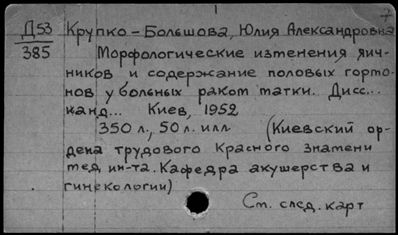 7
Д53 Крупко-Большова, Юлия Александровна
385 Морфологические изменения яич-
ников и содержание половых гормо-
нов у больных раком матки. Дисс...
канд... Киев, 1952
350 л., 50 л. илл. (Киевский ор-
дена трудового Красного Знамени
мед. ин-та. Кафедра акушерства и
гинекологии)
См. след. карт